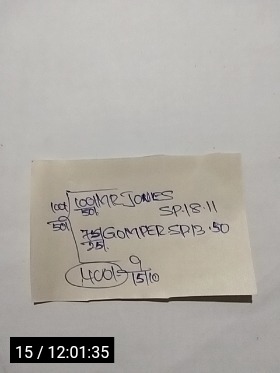 100/ 100/ MR JONES
50/ 50/ SP.18.11
75/ GOMPER SP.13.50
25/
400/= 9
15/10
15 / 12:01:35